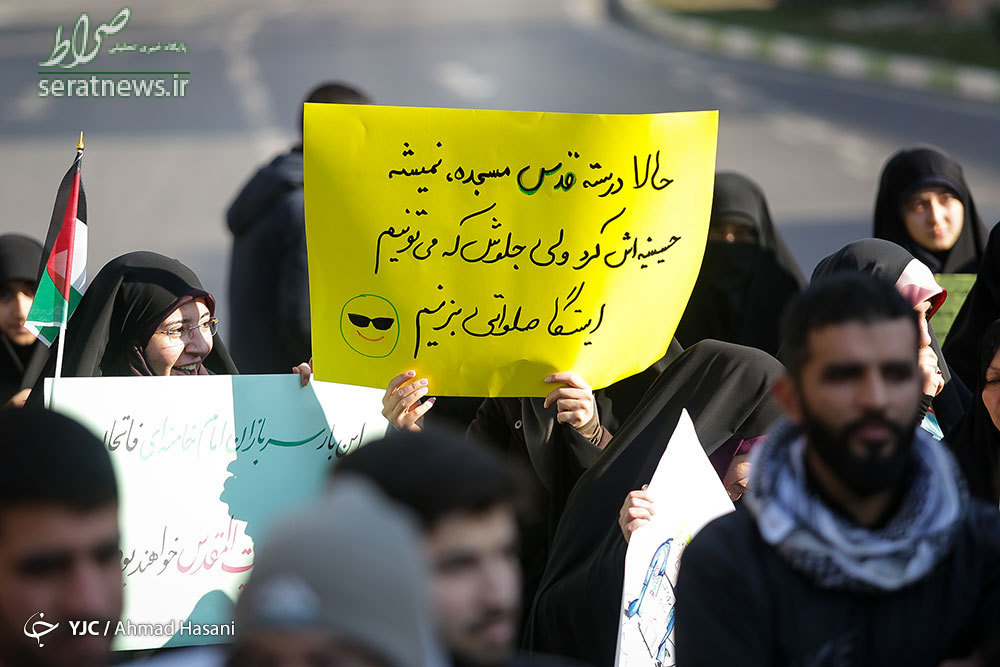 صراط
پایگاه خبری تحلیلی
seratnews.ir
حالا درسته قدس مسجده، نمیشه
حسینیه اش کرد ولی جلوش که می تونیم
ایستگاه صلواتی بزنیم
این بار سربازان امام خامنه ای فاتحان
المقدس خواهند بود
YJC / Ahmad Hasani